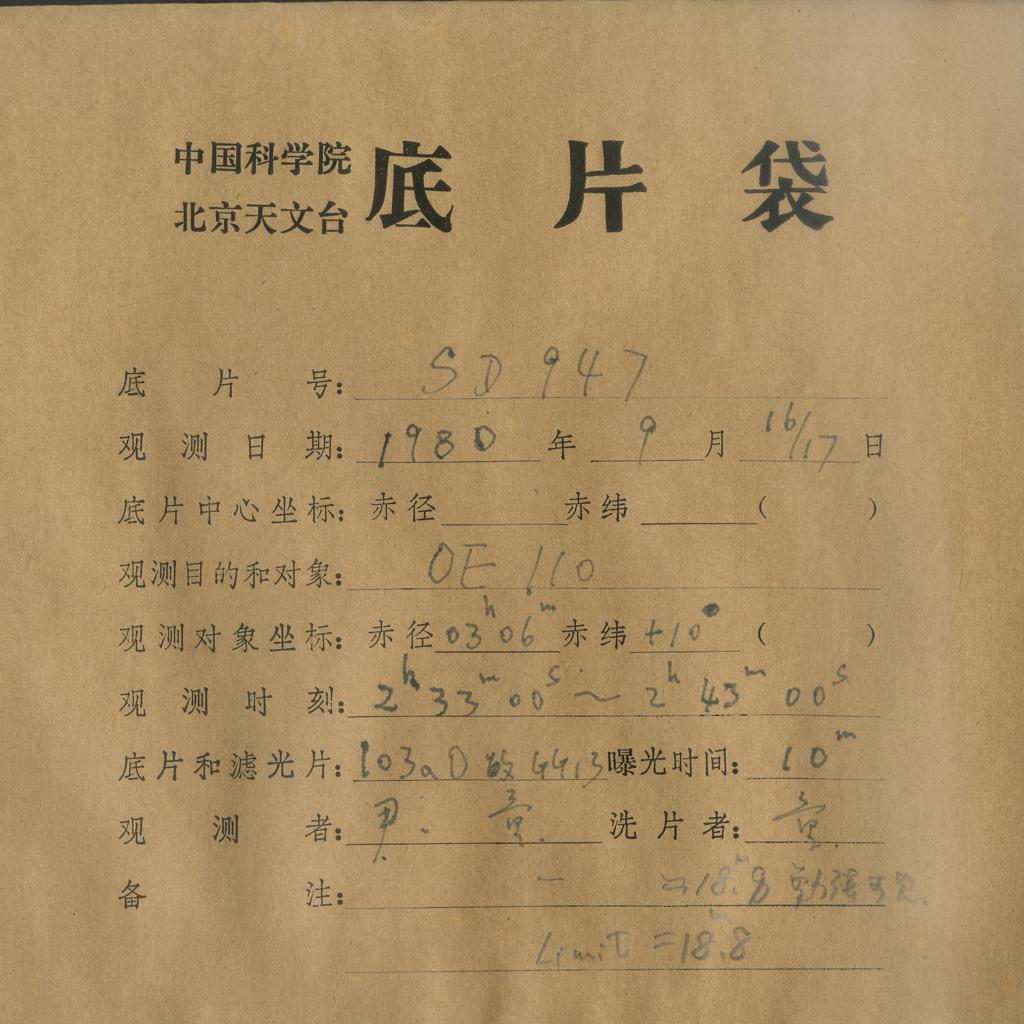 中国科学院
北京天文台
底片袋
底片号: SD 947
观测日期: 1980 年 9 月 16/17 日
底片中心坐标: 赤径 赤纬 ( )
观测目的和对象: OE 110
观测对象坐标: 赤径 03ʰ06ᵐ 赤纬 +10° ( )
观测时刻: 2ʰ 33ᵐ 00ˢ ~ 2ʰ 43ᵐ 00ˢ
底片和滤光片: 103aD 敏 GG13 曝光时间: 10ᵐ
观测者: 尹. 童. 洗片者: 童.
备注: — = 18.ᵐ8 勉强可见.
Limit = 18.ᵐ8